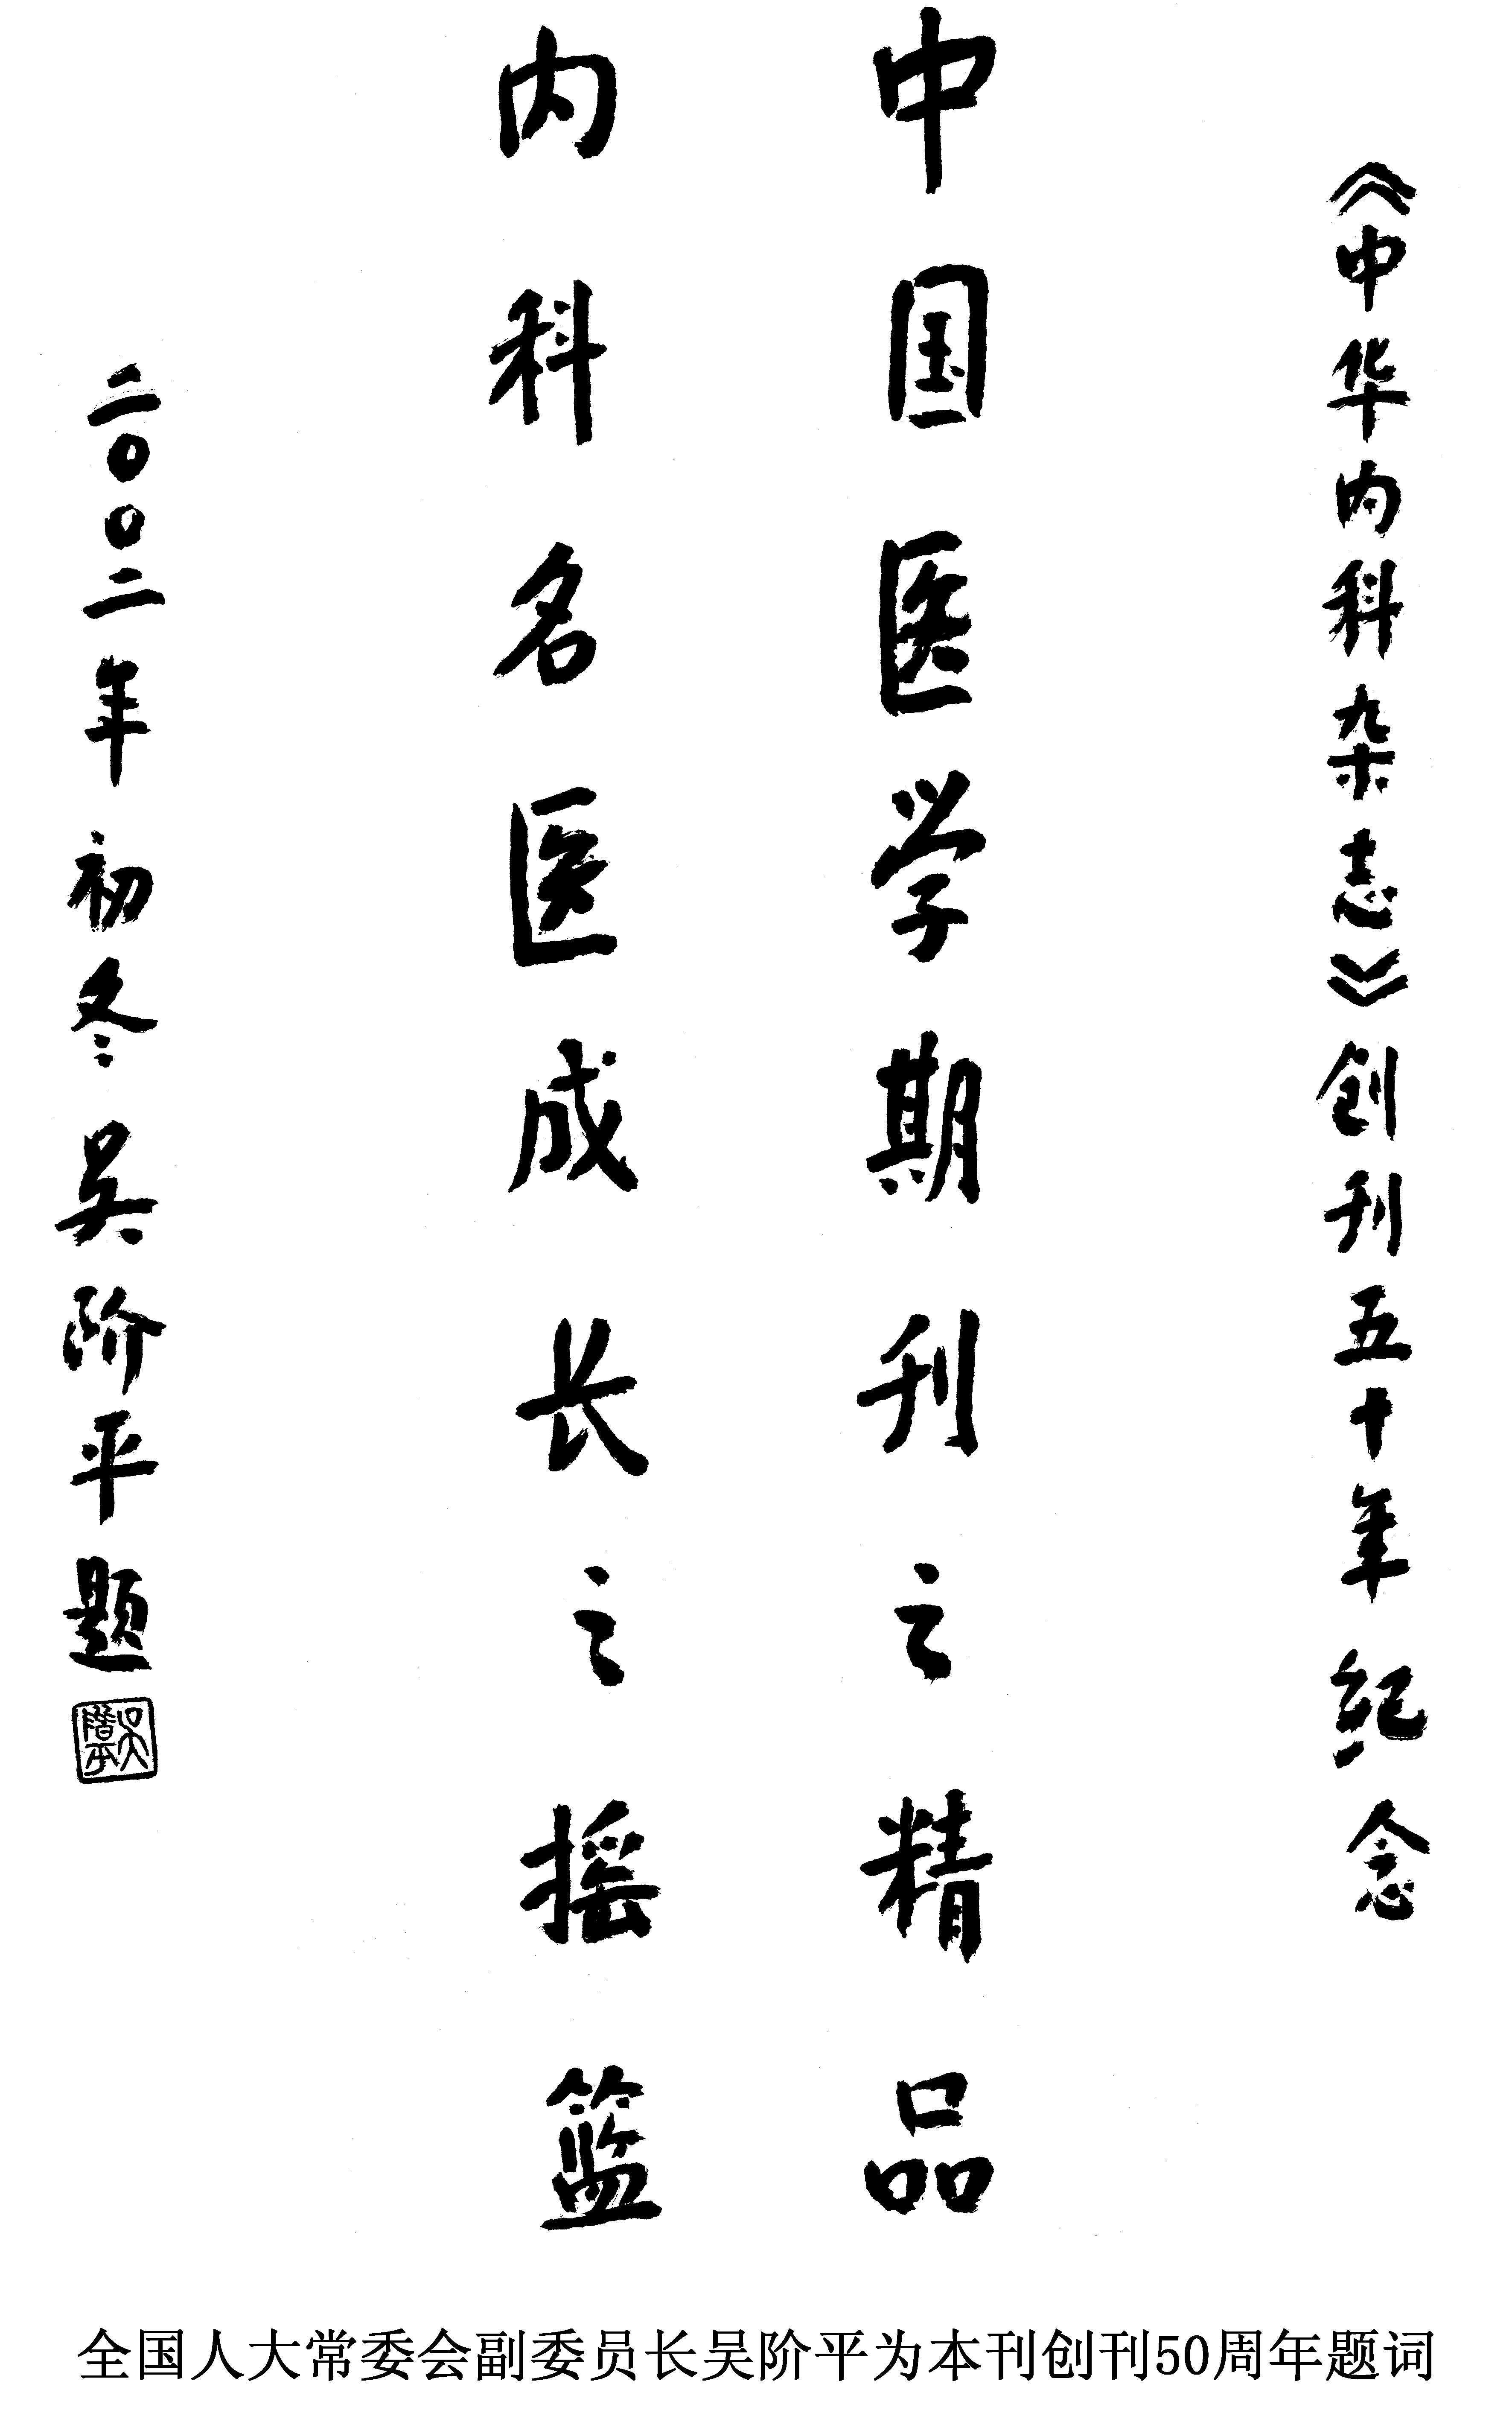 《中华内科杂志》创刊五十年纪念
中国医学期刊之精品
内科名医成长之摇篮
二〇〇二年初冬吴阶平题
吴阶平
全国人大常委会副委员长吴阶平为本刊创刊50周年题词